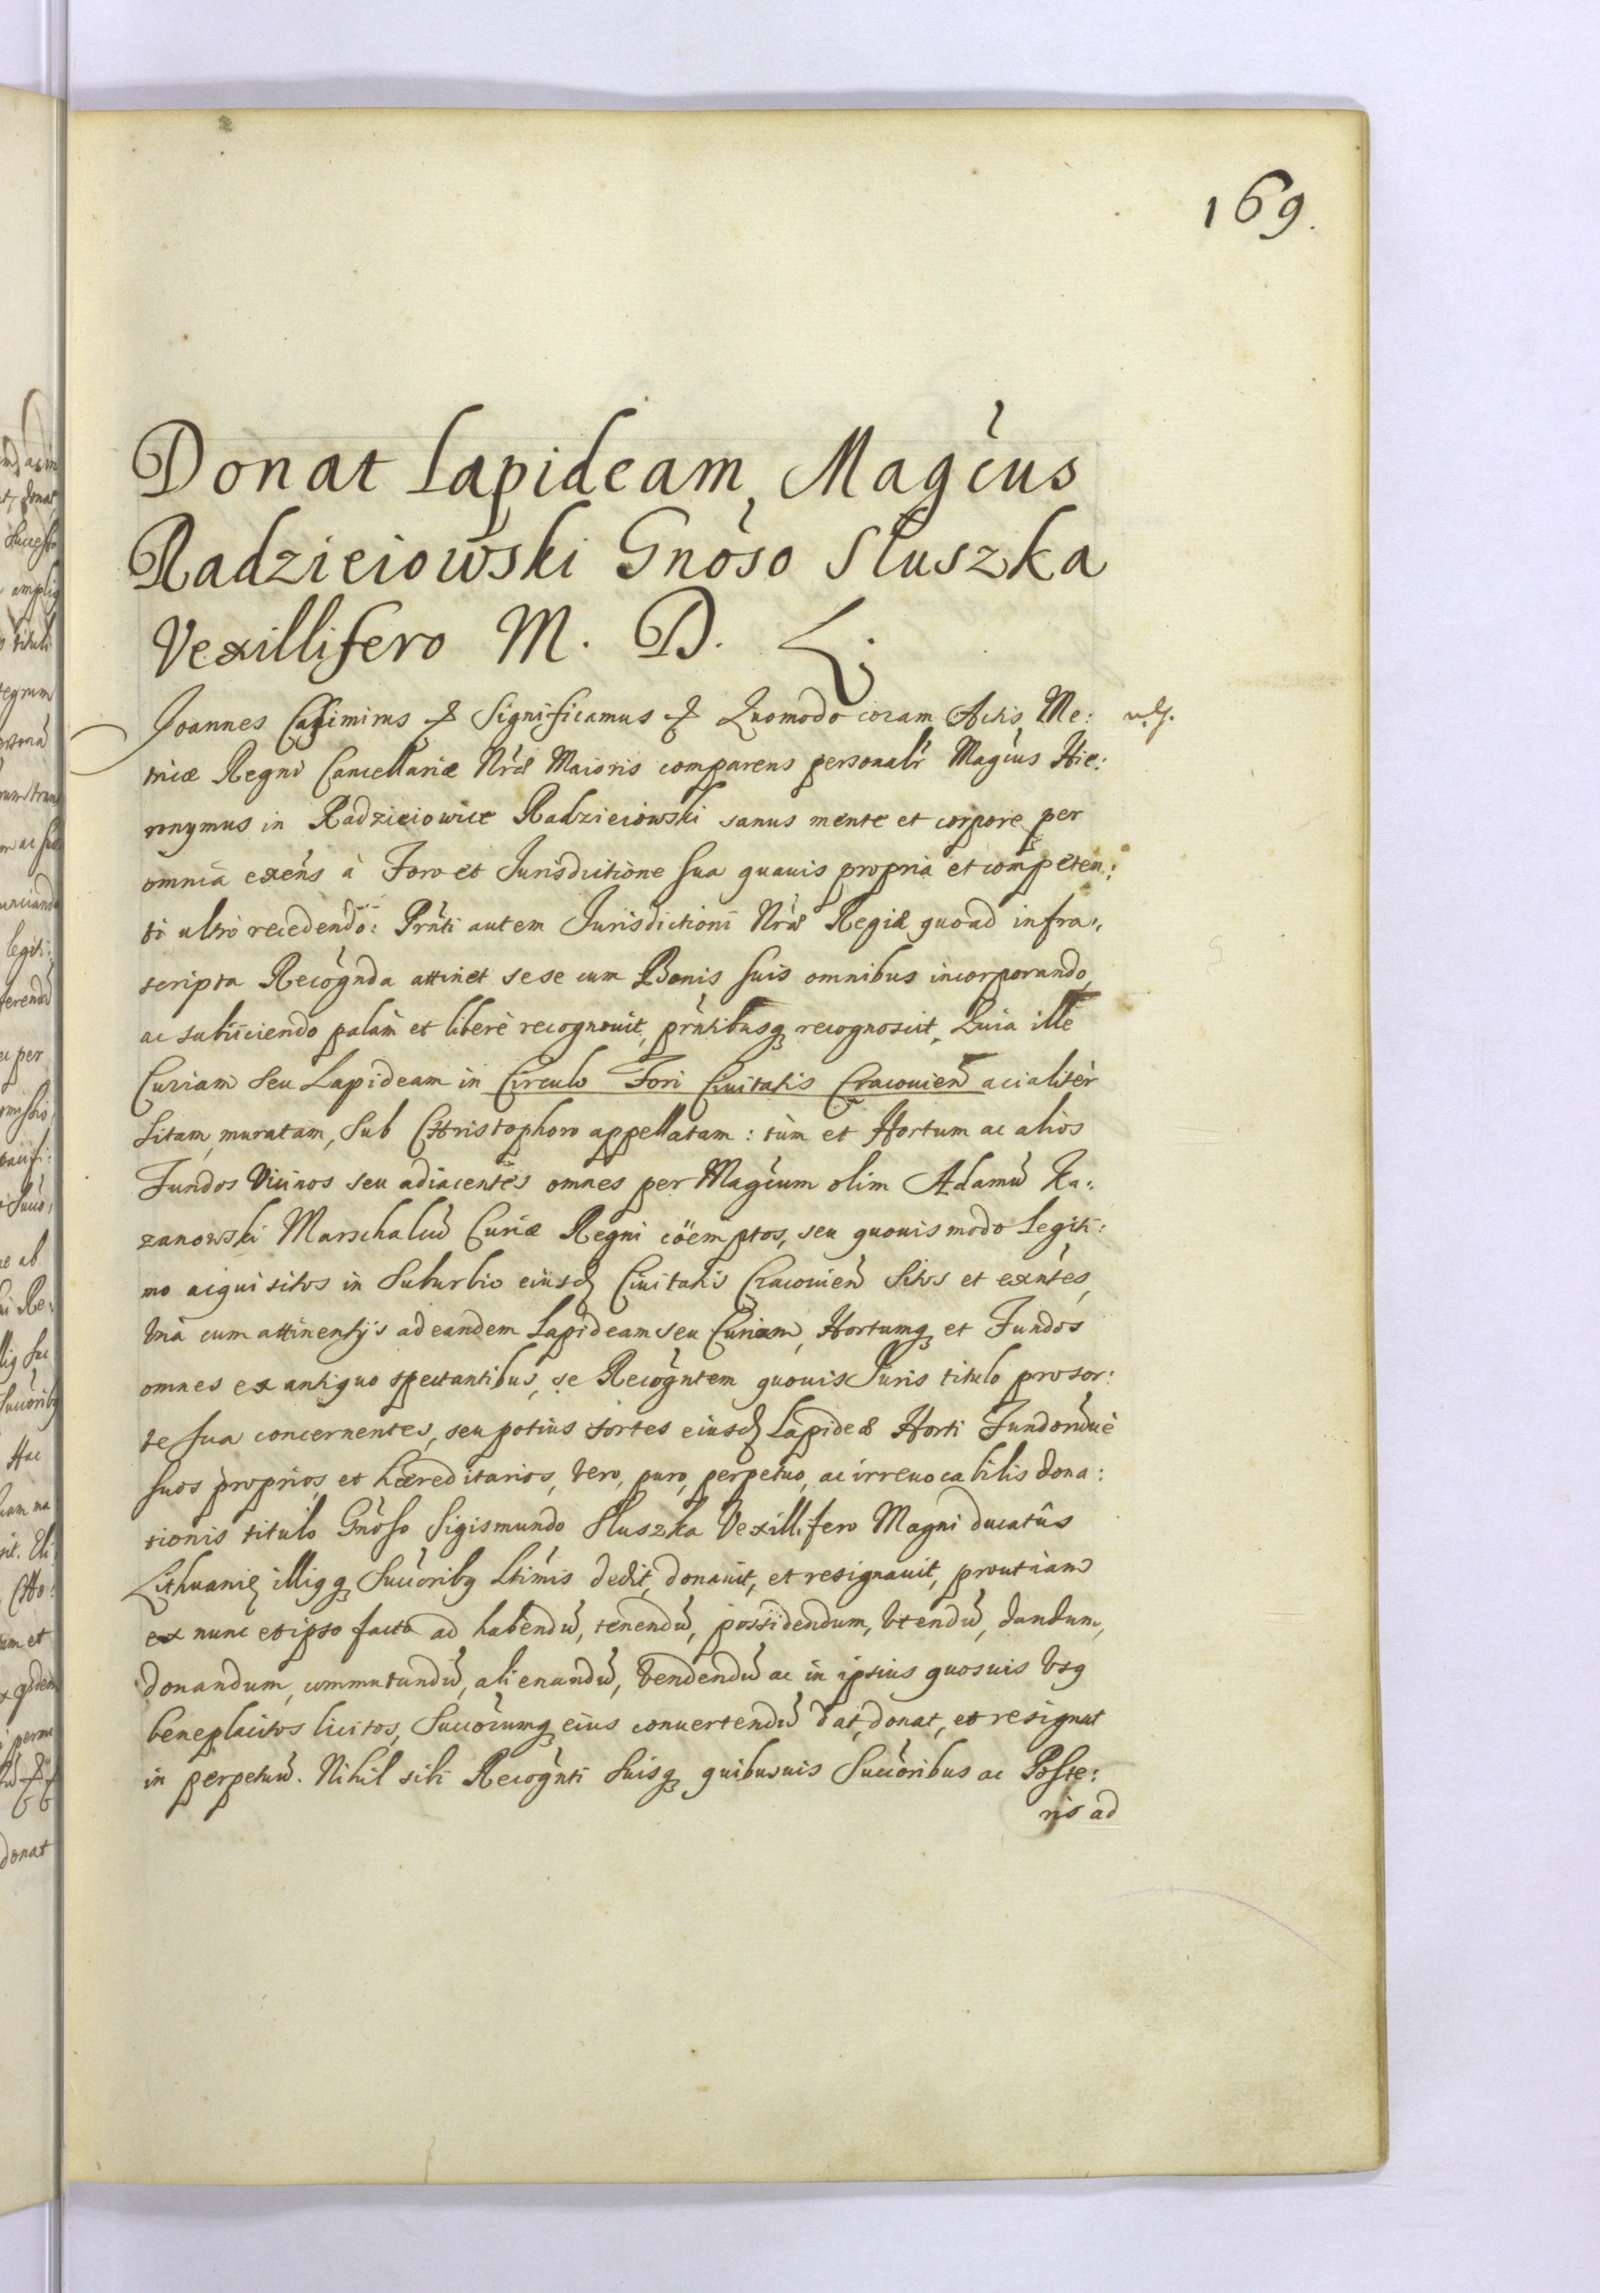 169.
Donat Lapideam, Magcus
Radzieiowski Gnoso Sluszka
Vexillifero M. D. L.
Joannes Casimirus & Significamus & Quomodo coram Actis Me:
tricæ Regni Cancellariæ Nræ Maioris comparens personalr Magcus Hie:
ronymus in Radzieiowice Radzieiowski sanus mente et corpore per
omnia exens à Foro et Jurisdictione sua quauis propria et competen:
ti ultrò recedendo: Prnti autem Jurisdictioni Nræ Regiæ quoad infra:
scripta Recognda attinet sese cum Bonis suis omnibus incorporando
ac subijciendo palàm et liberè recognouit, prntibusq recognoscit, Quia ille
Curiam seu Lapideam in Circulo Fori Ciuitatis Cracouien acialitèr
sitam, muratam, sub Christophoro appellatam: tùm et Hortum ac alios
Fundos Vicinos seu adiacentes omnes per Magcum olim Adamũ Ka:
zanowski Marschalcũ Curiæ Regni cöemptos, seu quouis modo Legiti:
mo acquisitos in Suburbio eiusd Ciuitatis Cracouien Sitos et exntes,
Vnà cum attinentijs ad eandem Lapideam seu Curiam, Hortumq et Fundos
omnes ex antiquo spectantibus, se Recogntem quouis Juris titulo pro sor:
te sua concernentes, seu potius sortes eiusd Lapideæ Horti Fundorũuè
suos proprios, et hæreditarios, vero, puro, perpetuo, ac irreuocabilis dona:
tionis titulo Gnoso Sigismundo Sluszka Vexillifero Magni Ducatûs
Lithuanię illiqq Succoribq Ltimis dedit, donauit, et resignauit, prout iam
ex nunc et ipso facto ad habendũ, tenendũ, possidendum, vtendũ, dandum,
donandum, commutandũ, alienandũ, vendendũ ac in ipsius quosuis vsq
beneplacitos licitos, Succorumq eius conuertendũ dat, donat, et resignat
in perpetuũ. Nihil sibi Recognti suisq quibusuis Succoribus ac Poste:
ris ad